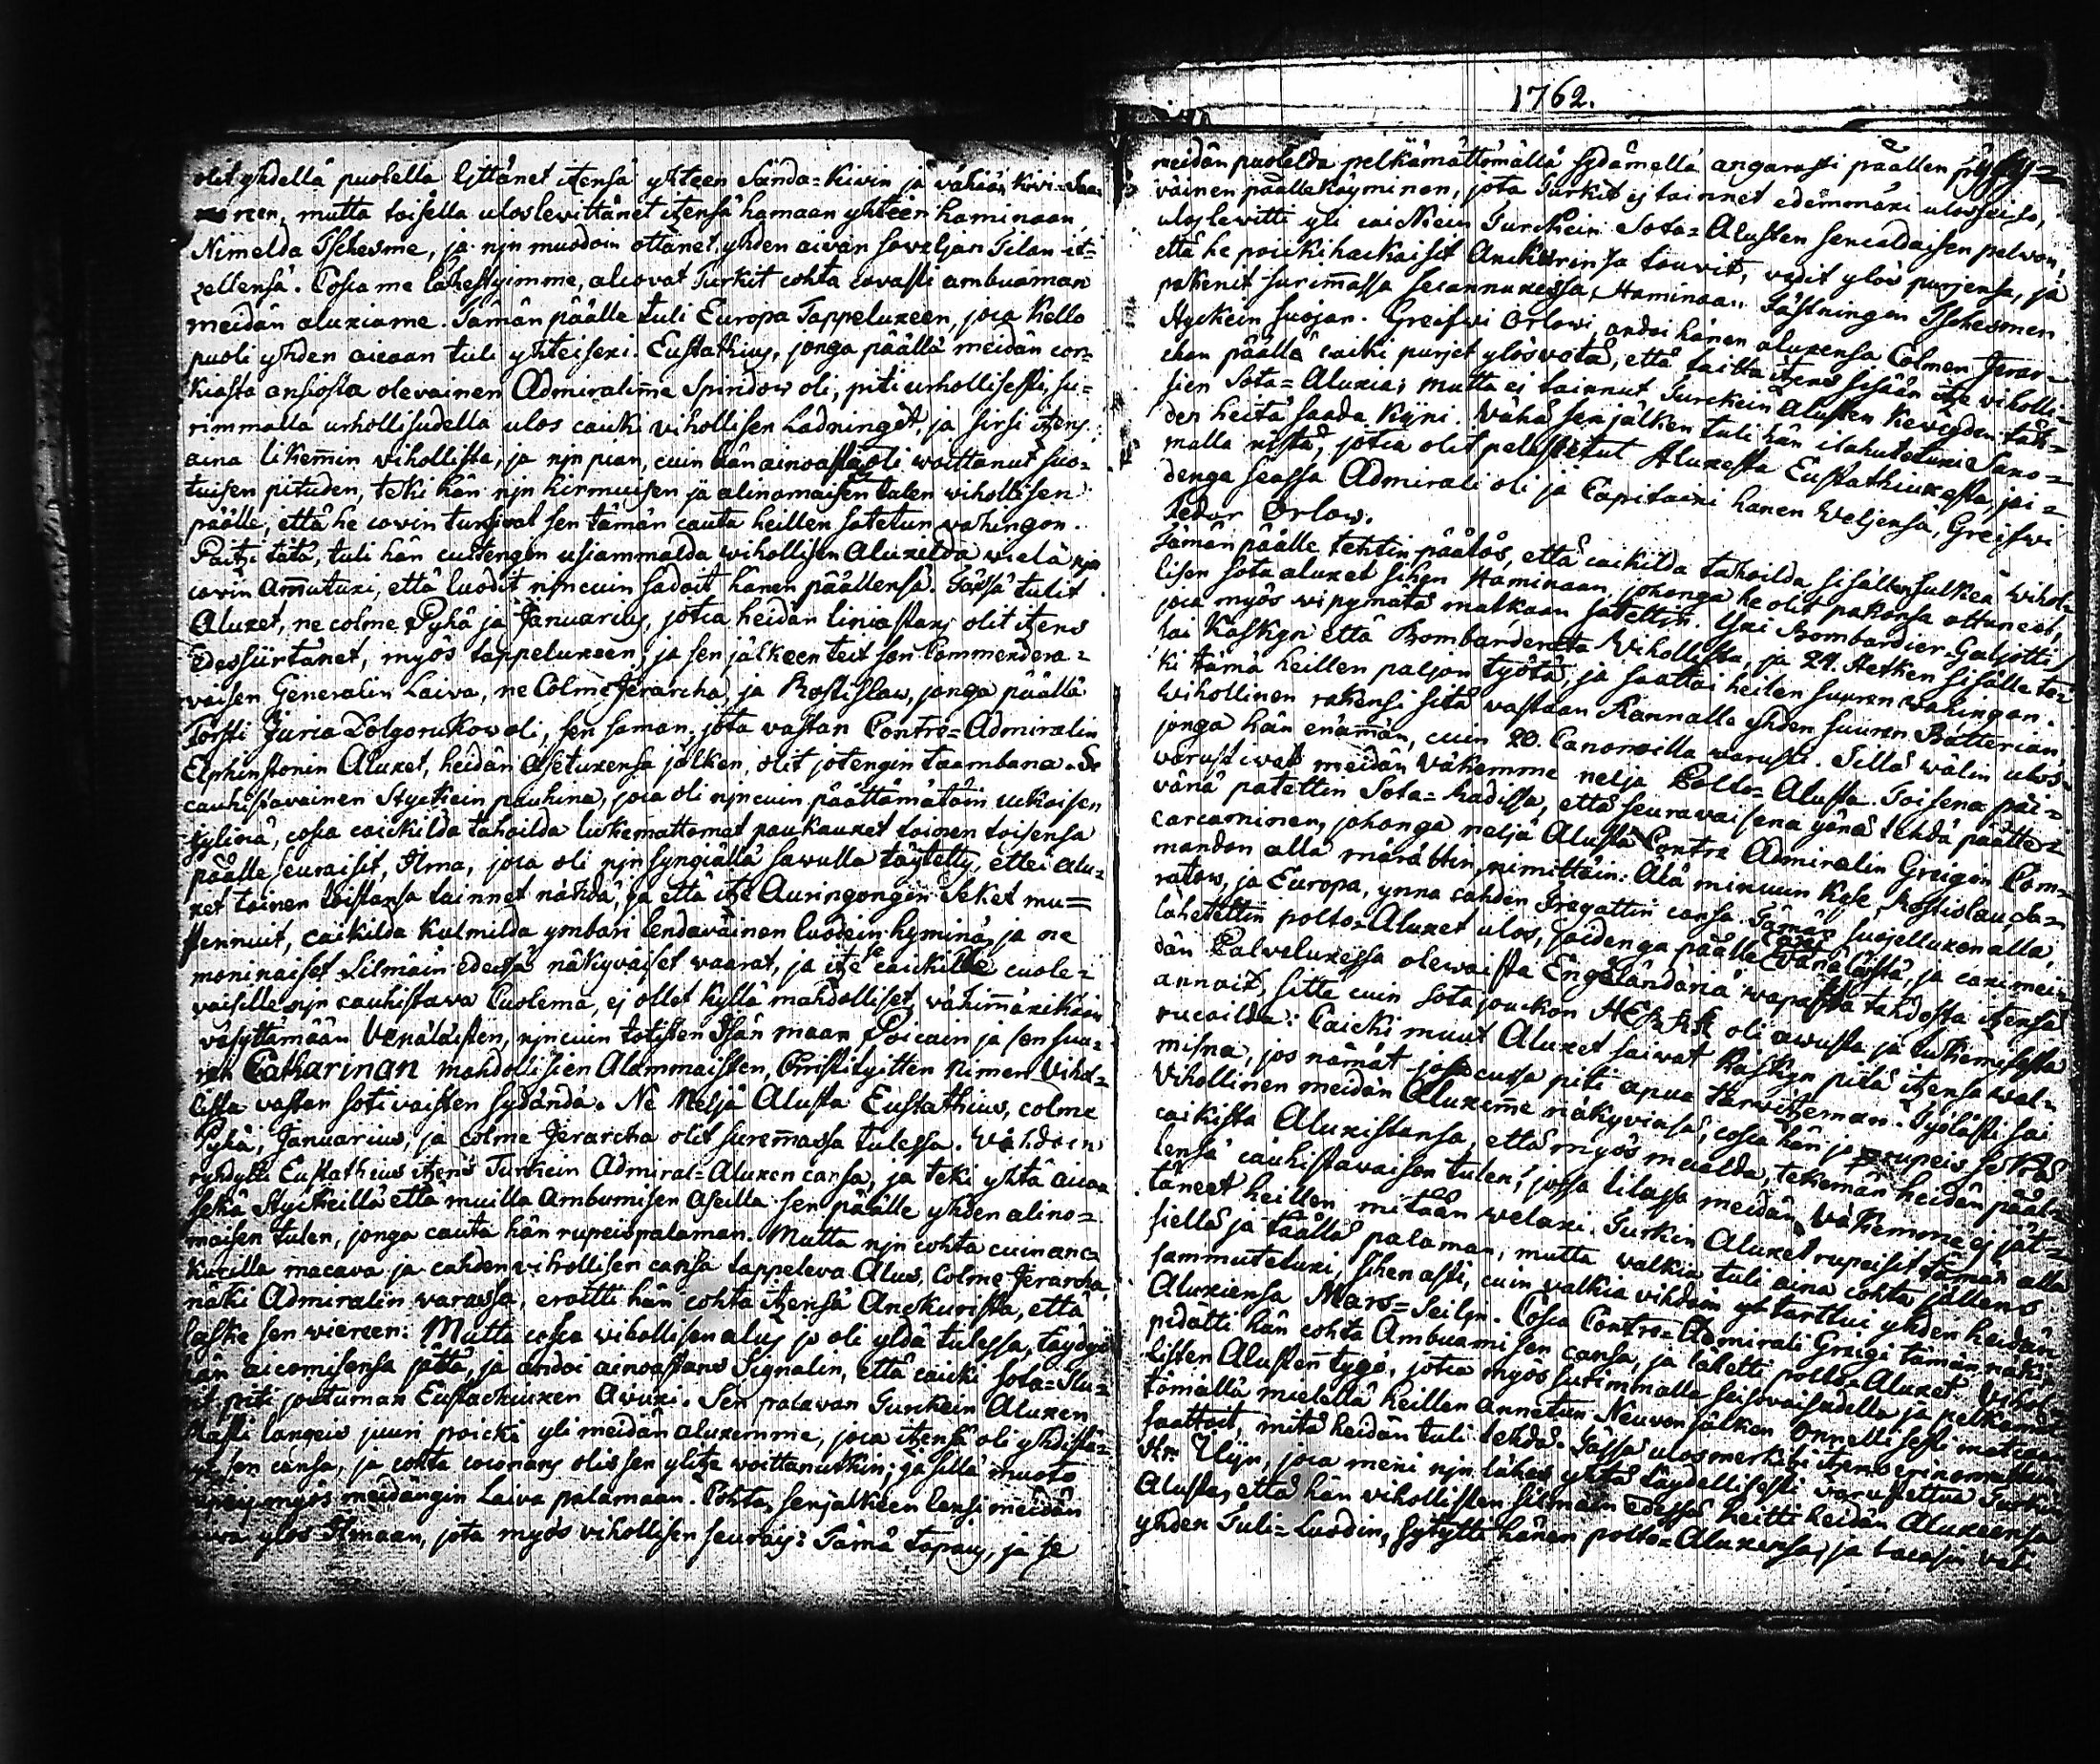 olit yhdellä puolella lijttänet itzensä yhteen Sanda=Kivin ja vähiän kivi=Saa=
reen, mutta toisella uloslevittänet itzensä hamaan yhteen haminaan,
Nimeldä Tschesme, ja nijn muodoin ottanet yhden aivan soveljan Tilan it=
zellensä. Cosca me lähestyimme, alcovat Turkit cohta covasti ambuaman
meidän aluxiame. Tämän päälle tuli Europa Tappeluxeen, joca kello
puoli yhden aicaan tuli yhteisexi. Eustathius, jonga päällä meidän cor=
kiasta ansiosta olevainen Admiralime Spiridow oli, piti urhollisesti, su=
rimmalla urhollisudella ulos caicki vihollisen Ladninget, ja sirsi itzens
aina likemmin vihollista, ja nijn pian, cuin hän ainoastans oli woittanut suo=
tuisen pituden, teki hän nijn hirmuisen ja alinomaisen tulen wihollisen
päälle, että he covin tunsivat sen tämän cautta heillen satetun vahingon.
Paitzi tätä, tuli hän cuitengin usiammalda wihollisen Aluxilda wielä nijn
covin ammutuxi, että luodit nijncuin sadoit hänen päällensä. Tässä tulit
Aluxet, ne colme Pyhä ja Januarius, jotca heidän liniastans olit itzens
edessiirtänet, myös tappeluxeen, ja sen jälkeen teit sen Commendera=
vaisen Generalin Laiva, ne Colme Jerarcha, ja Rostislaw, jonga päällä
Försti Juria Dolgorukow oli, sen saman, jota vastan Contre=Admiralin
Elphinstonin Aluxet, heidän asetuxensa jälken, olit jotengin taambana. Se
cauhistavainen Styckein pauhina, joca oli nijncuin päättämätöin ukoisen
jylinä, cosca caickilda tahoilda lukemattomat paukauxet toinen toisensa
päälle seuraiset, Ilma, joca oli nijn syngiällä savulla täytetty, ettei alu=
xet toinen toistansa tainnet nähdä, ja että itze Auringongin Seket mu=
stennuit, caikilda kulmilda ymbäri lendäväinen luodein hyminä, ja ne
moninaiset Silmäin edesä näkyväiset vaarat, ja itze se caickille cuole=
vaiselle nijn cauhistava Cuolema, ej ollet kyllä mahdolliset, vähimmäxikään
väsyttämään Venäläisten, nijncuin totisten Isän maan Poicain ja sen suu=
ren Catharinan mahdollisien Alammaisten, Christilyitten Nimen Vihol=
lista vastan sotivaisten sydändä. Ne Neljä Alusta Eustathius, colme
Pyhä, Januarius, ja colme Jerarcha olit suremassa tulessa. Vihdoin
ryhdytti Eustathius itzens Turkein Admiral=Aluxen cansa, ja teki yhtä aicaa
sekä Styckeillä että muilla Ambumisen aseilla sen päälle yhden alino=
maisen tulen, jonga cauta hän rupeis palaman. Mutta nijn cohta cuin anc=
kurilla macava ja cahden vihollisen cansa tappeleva Alus, Colme Jerarcha,
näki Admiralin varassa, eroitti hän cohta itzensä Anckurista, että
laske sen viereen: Mutta cosca wihollisen alus jo oli yldä tulessa, täydyi
hän aicomisensa jättä, ja andoi ainoastans Signalin, että caicki Sota=Alu=
xit piti joutuman Eustachiuxen Avuxi. Sen palavan Turckein Aluxen
Masti langeis juuri poicki yli meidän aluxemme, joca itzensä oli yhdistä=
nyt sen cansa, ja cohta coconans olis sen ylitze woittanutkin; ja sillä muoto
rupeis myös meidängin Laiva palamaan. Cohta senjälkeen lensi meidän
laiva ylös Ilmaan, jota myös vihollisen seurais: Tämä tapaus, ja se
1762.
meidän puolelda pelkämättömällä sydämellä angarasti päällen pysy=
väinen päällekäyminen, jota Turkit ej tainnet edemmäxi ulosseiso,
uloslewitti yli caickein Turckein Sota=Alusten sencaldaisen pelwon,
että he poickihackaiset Anckurinsa touvit, vedit ylös purjensa, ja
pakenit surimassa secannuxessa Haminaan, Fästningen Tschesmen
styckein suojan. Greifwi Orlowi, andoi hänen aluxensa Colmen Jerar=
chan päällä caicki purjet ylösvetä, että taitta itzens sisään itze viholli=
sien Sota=Aluxia; mutta ej tainnut Turckein Alusten keveyden täh=
den heitä saada kijni. Vähä sen jälken tuli hän ilahutetuxi Sano=
malla nistä, jotca olit pelastetut Aluxesta Eustathiuxesta, joi=
denga seassa Admirali oli ja Capitaini hänen Veljensä, Greifwi
Fedor Orlow.
Tämän päälle tehtin päätös, että caikilda tahoilda sisällensulkea wihol=
lisen sota aluxet sihen Haminaan, johonga he olit pakonsa ottaneet,
joca myös wipymätä matkaan satettin. Yxi Bombardier=Galjotti
sai Käskyn että Bombarderata Vihollista, ja 24. Hetken sisälle te=
ki tämä heillen paljon työtä, ja saattoi heilen suuren wahingon.
Wihollinen rakensi sitä vastaan Rannalla yhden suuren Batterian,
jonga hän enämän, cuin 20. Canonoilla warusti. Sillä wälin ulos=
varustiwat meidän väkemme nelja Polto=Alusta. Toisena päi=
vänä patettin Sota=Radissa, että seuravaisena yönä tehdä päälle=
carcaminen, johonga neljä Alusta Contre Admiralin Greigin Com=
mandon alla määrättin, nimittäin: Älä minuun Kose, Rostislaw, Sa=
ratow, ja Europa, ynnä cahden Fregattin cansa. Tämän suojelluxen alla
lähetettin polto=Aluxet ulos, joidenga päälle Caxi Venäläistä, ja caxi mei=
dän Palveluxessa olewaista Engeländäriä wapasta tahdosta itzensä
annoit, sitte cuin sota joucon HERRA oli avusta ja tukemisesta
rucoilda: Caicki muut Aluxet saivat Käskyn pitä itzensä wal=
misna, jos nämät jossacussa piti apua tarvitzeman. Työlästi sai
Vihollinen meidän Aluxemme näkyviinsä, cosca hän jo rupeis sekä
caikista Aluxistansa, että myös maalda, tekemän heidän pääl=
lensä cauhistavaisen tulen; jossa tilassa meidän Väkemme ej jät=
täneet heillen mitään welaxi. Turkin Aluxet rupeisit tämän alla
siellä ja täällä palaman, mutta valkia tuli aina cohta jällens
sammutetuxi, sihen asti, cuin valkia vihdoin yt tarttui yhden heidän
Aluxiensa Mars=Seilijn. Cosca Contre=Admirali Greigi tämän näki,
pidätti hän cohta Ambuamisen cansa, ja lähetti polto=Aluxet Vihol=
listen Alusten tygö, jotca myös surimmalla seisovaisudella ja pelkämät=
tömällä mielellä heillen annetun Neuvon jälken Onnellisesti matcaan
saattoit, mitä heidän tuli tehdä. Tässä ulosmerkitzi itzens erinomattain
Hr. Ilijn, joca meni nijn lähes yhtä täydellisesti varustettua Turkin
Alusta, että hän vihollisten silmäin edessä heitti heidän Aluxeensa
yhden Tuli=Luodin, sytytti hänen polto=Aluxensa, ja tacasin veti